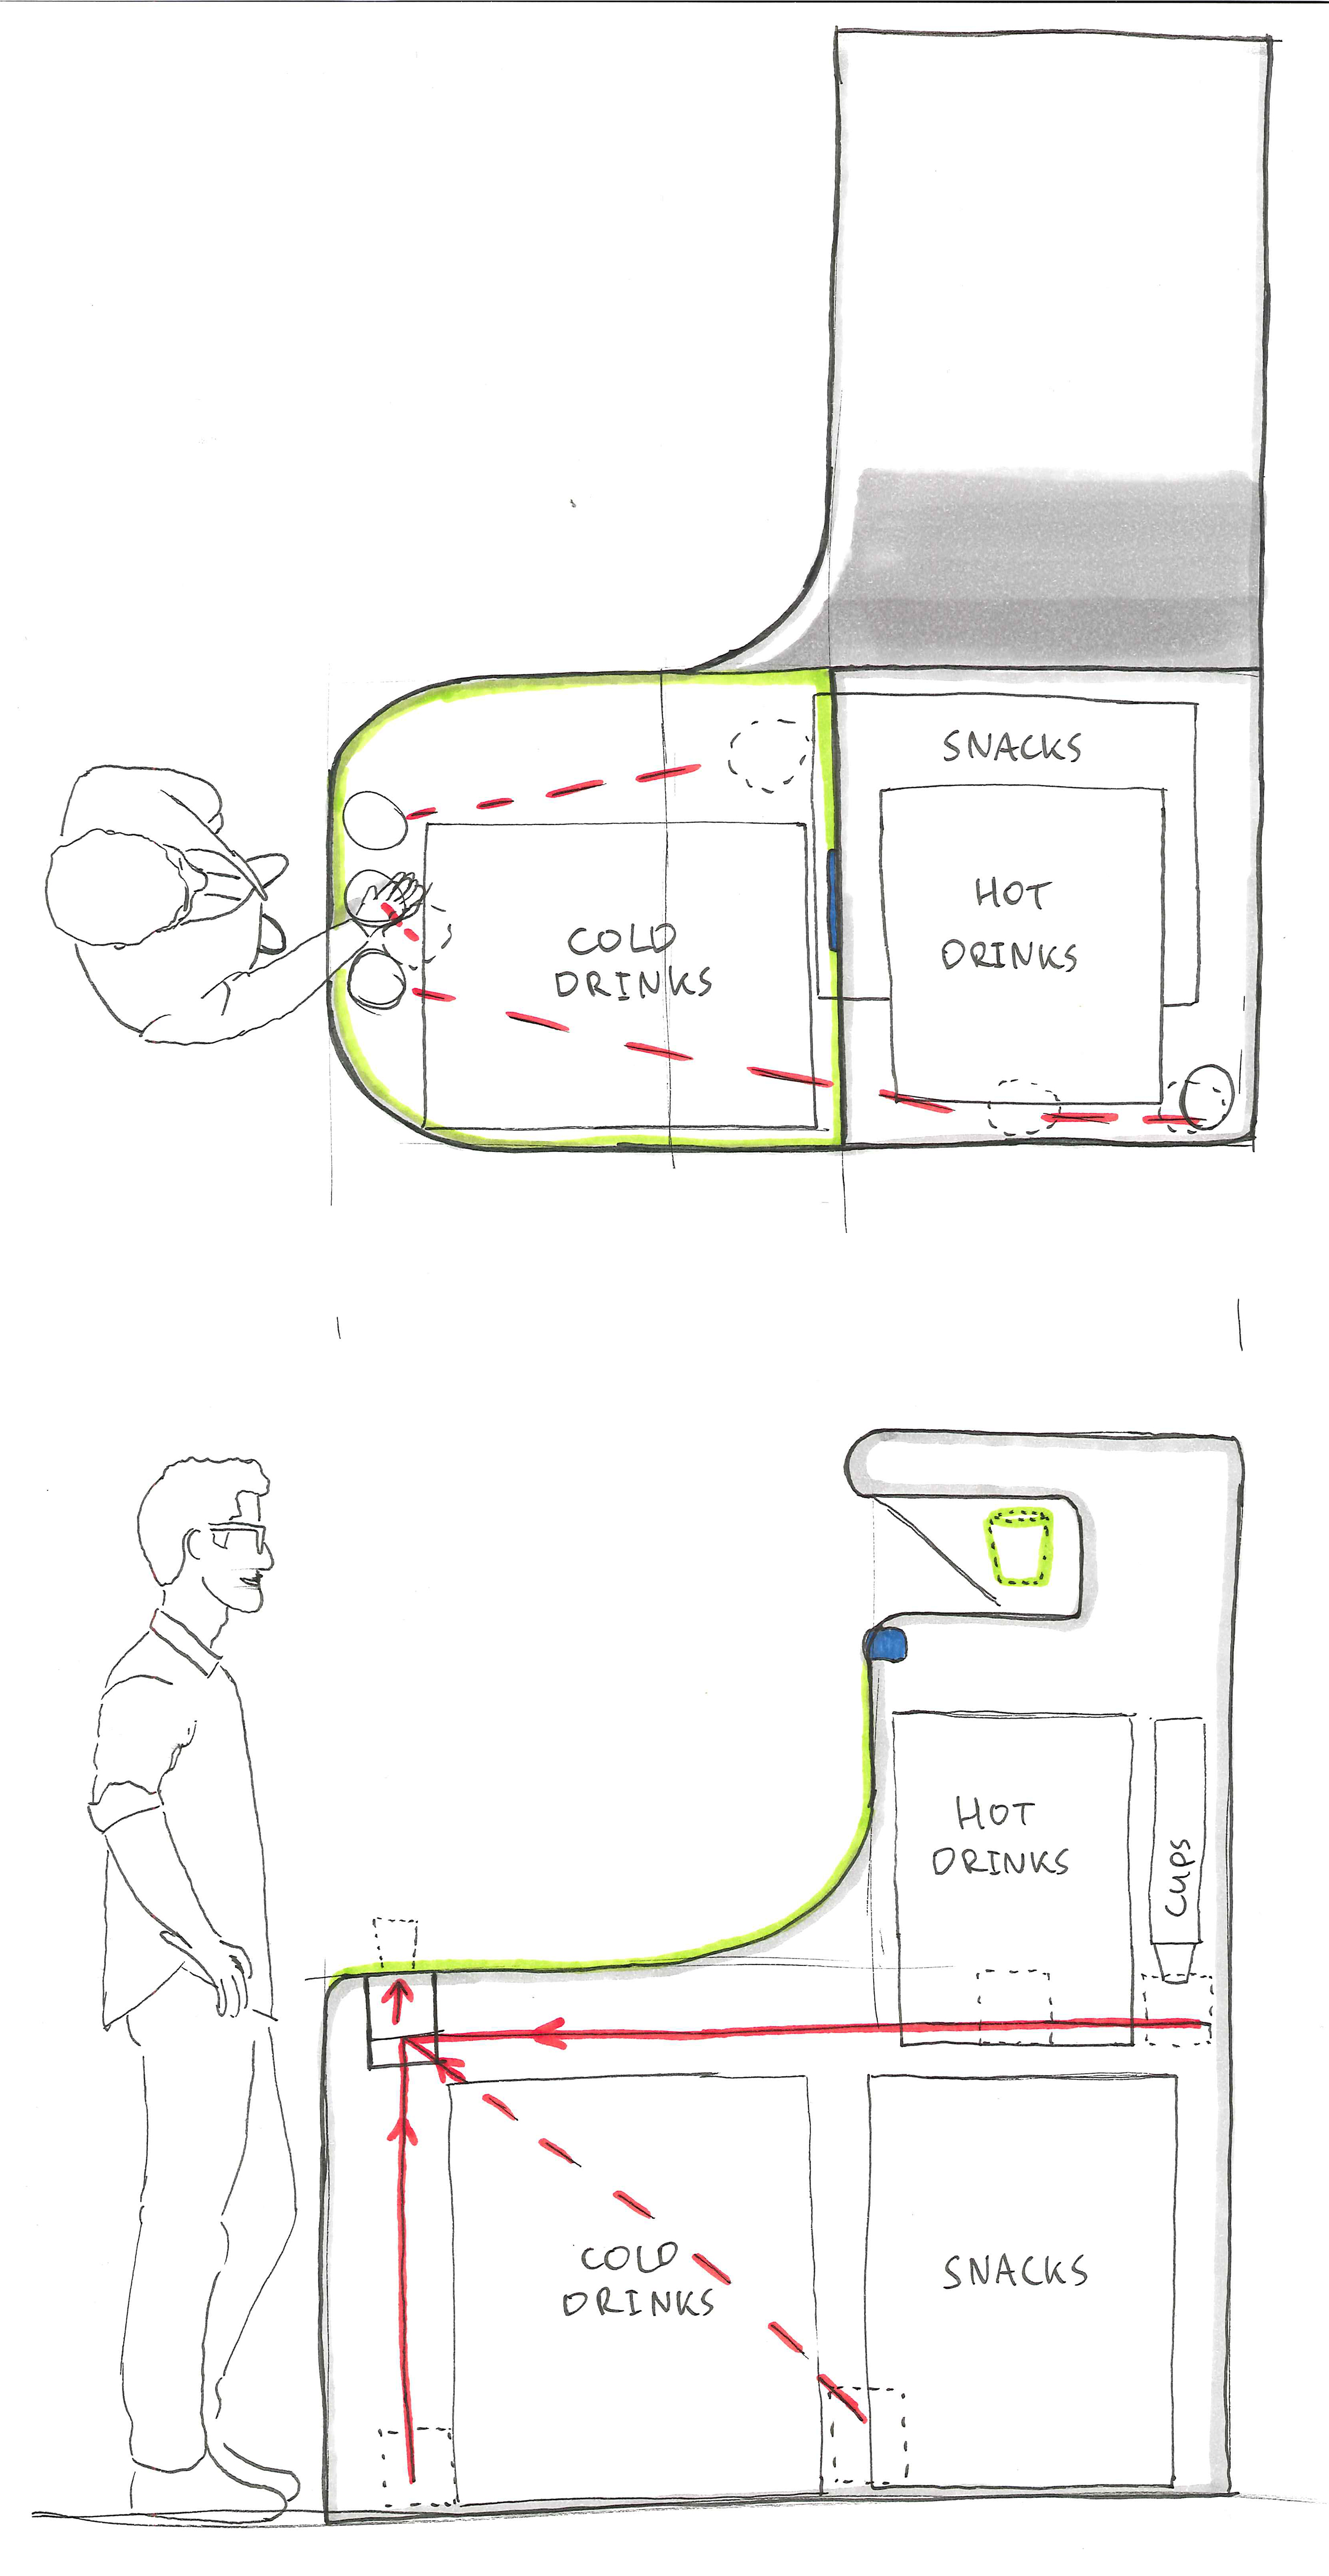 SNACKS
HOT
DRINKS
COLD
DRINKS
HOT
DRINKS
CUPS
COLD
DRINKS
SNACKS